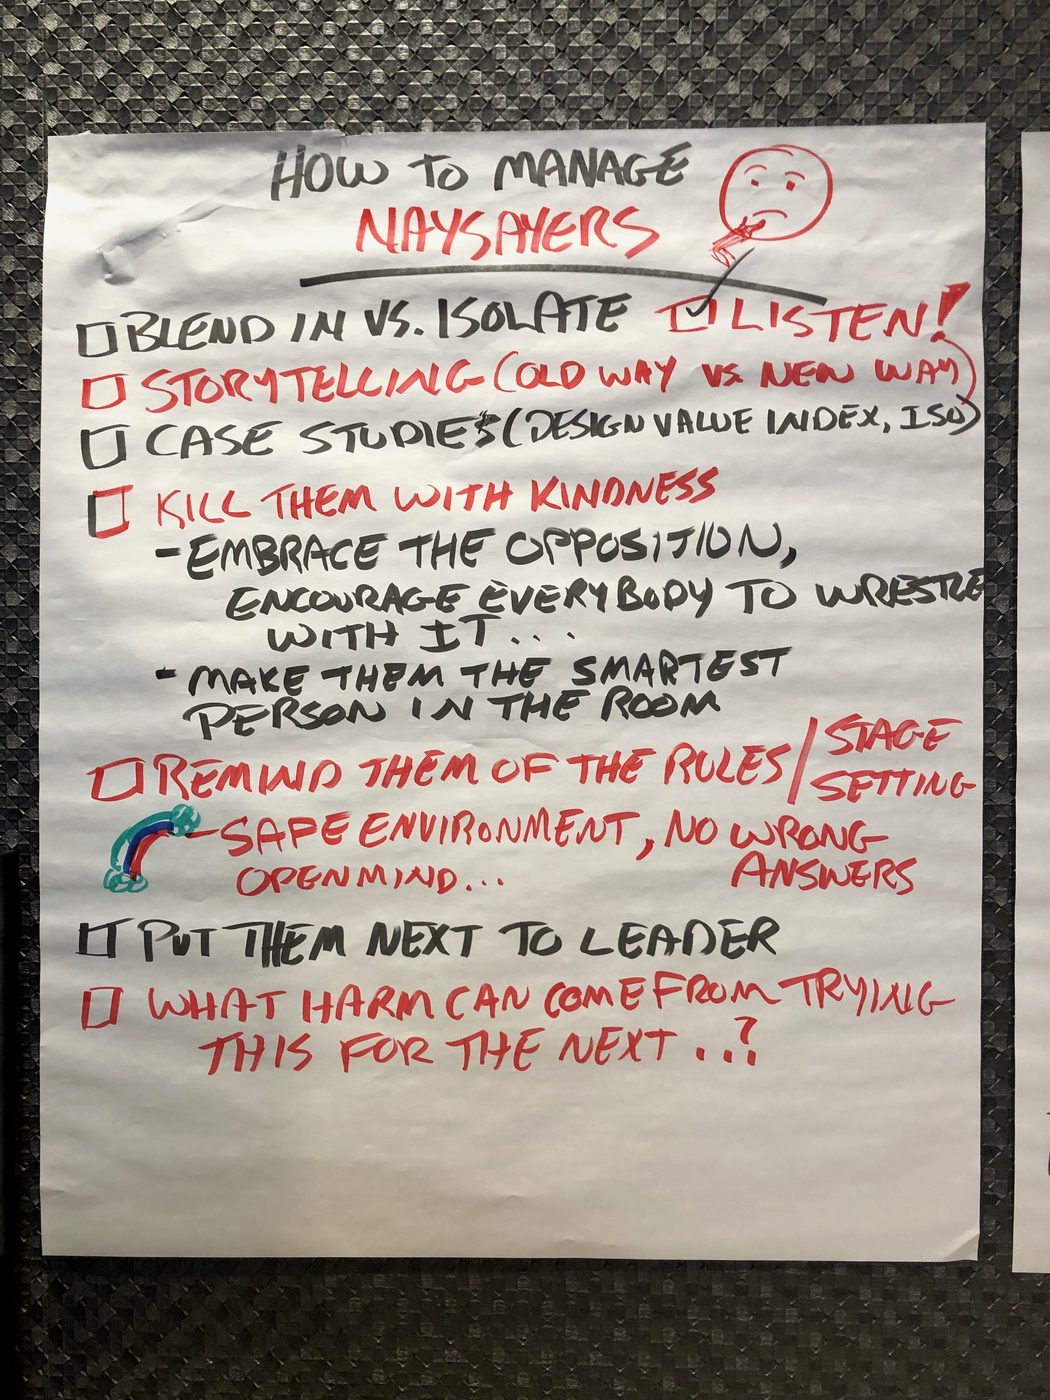 HOW TO MANAGE
NAYSAYERS
BLEND IN VS. ISOLATE LISTEN!
STORYTELLING (OLD WAY VS NEW WAY)
CASE STUDIES (DESIGN VALUE INDEX, ISO)
KILL THEM WITH KINDNESS
- EMBRACE THE OPPOSITION,
ENCOURAGE EVERYBODY TO WRESTLE
WITH IT...
- MAKE THEM THE SMARTEST
PERSON IN THE ROOM
REMIND THEM OF THE RULES / STAGE
SETTING
- SAFE ENVIRONMENT, NO WRONG
OPEN MIND... ANSWERS
PUT THEM NEXT TO LEADER
WHAT HARM CAN COME FROM TRYING
THIS FOR THE NEXT ..?